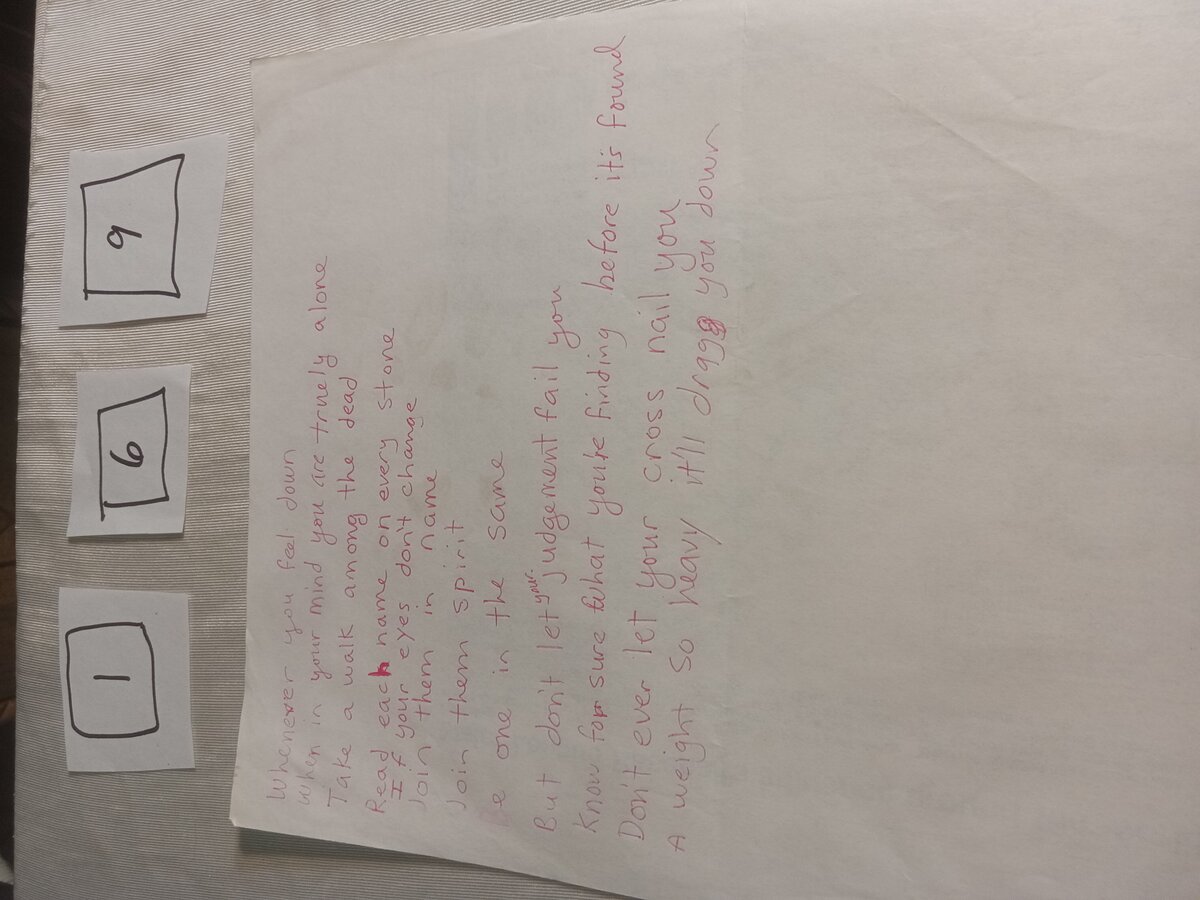 1 6 9
Whenever you feel down
When in your mind you are truely alone
Take a walk among the dead
Read each name on every stone
If your eyes don't change
Join them in name
Join them spirit
Be one in the same
But don't let your judgement fail you
Know for sure what you're finding before it's found
Don't ever let your cross nail you
A weight so heavy it'll dragg you down